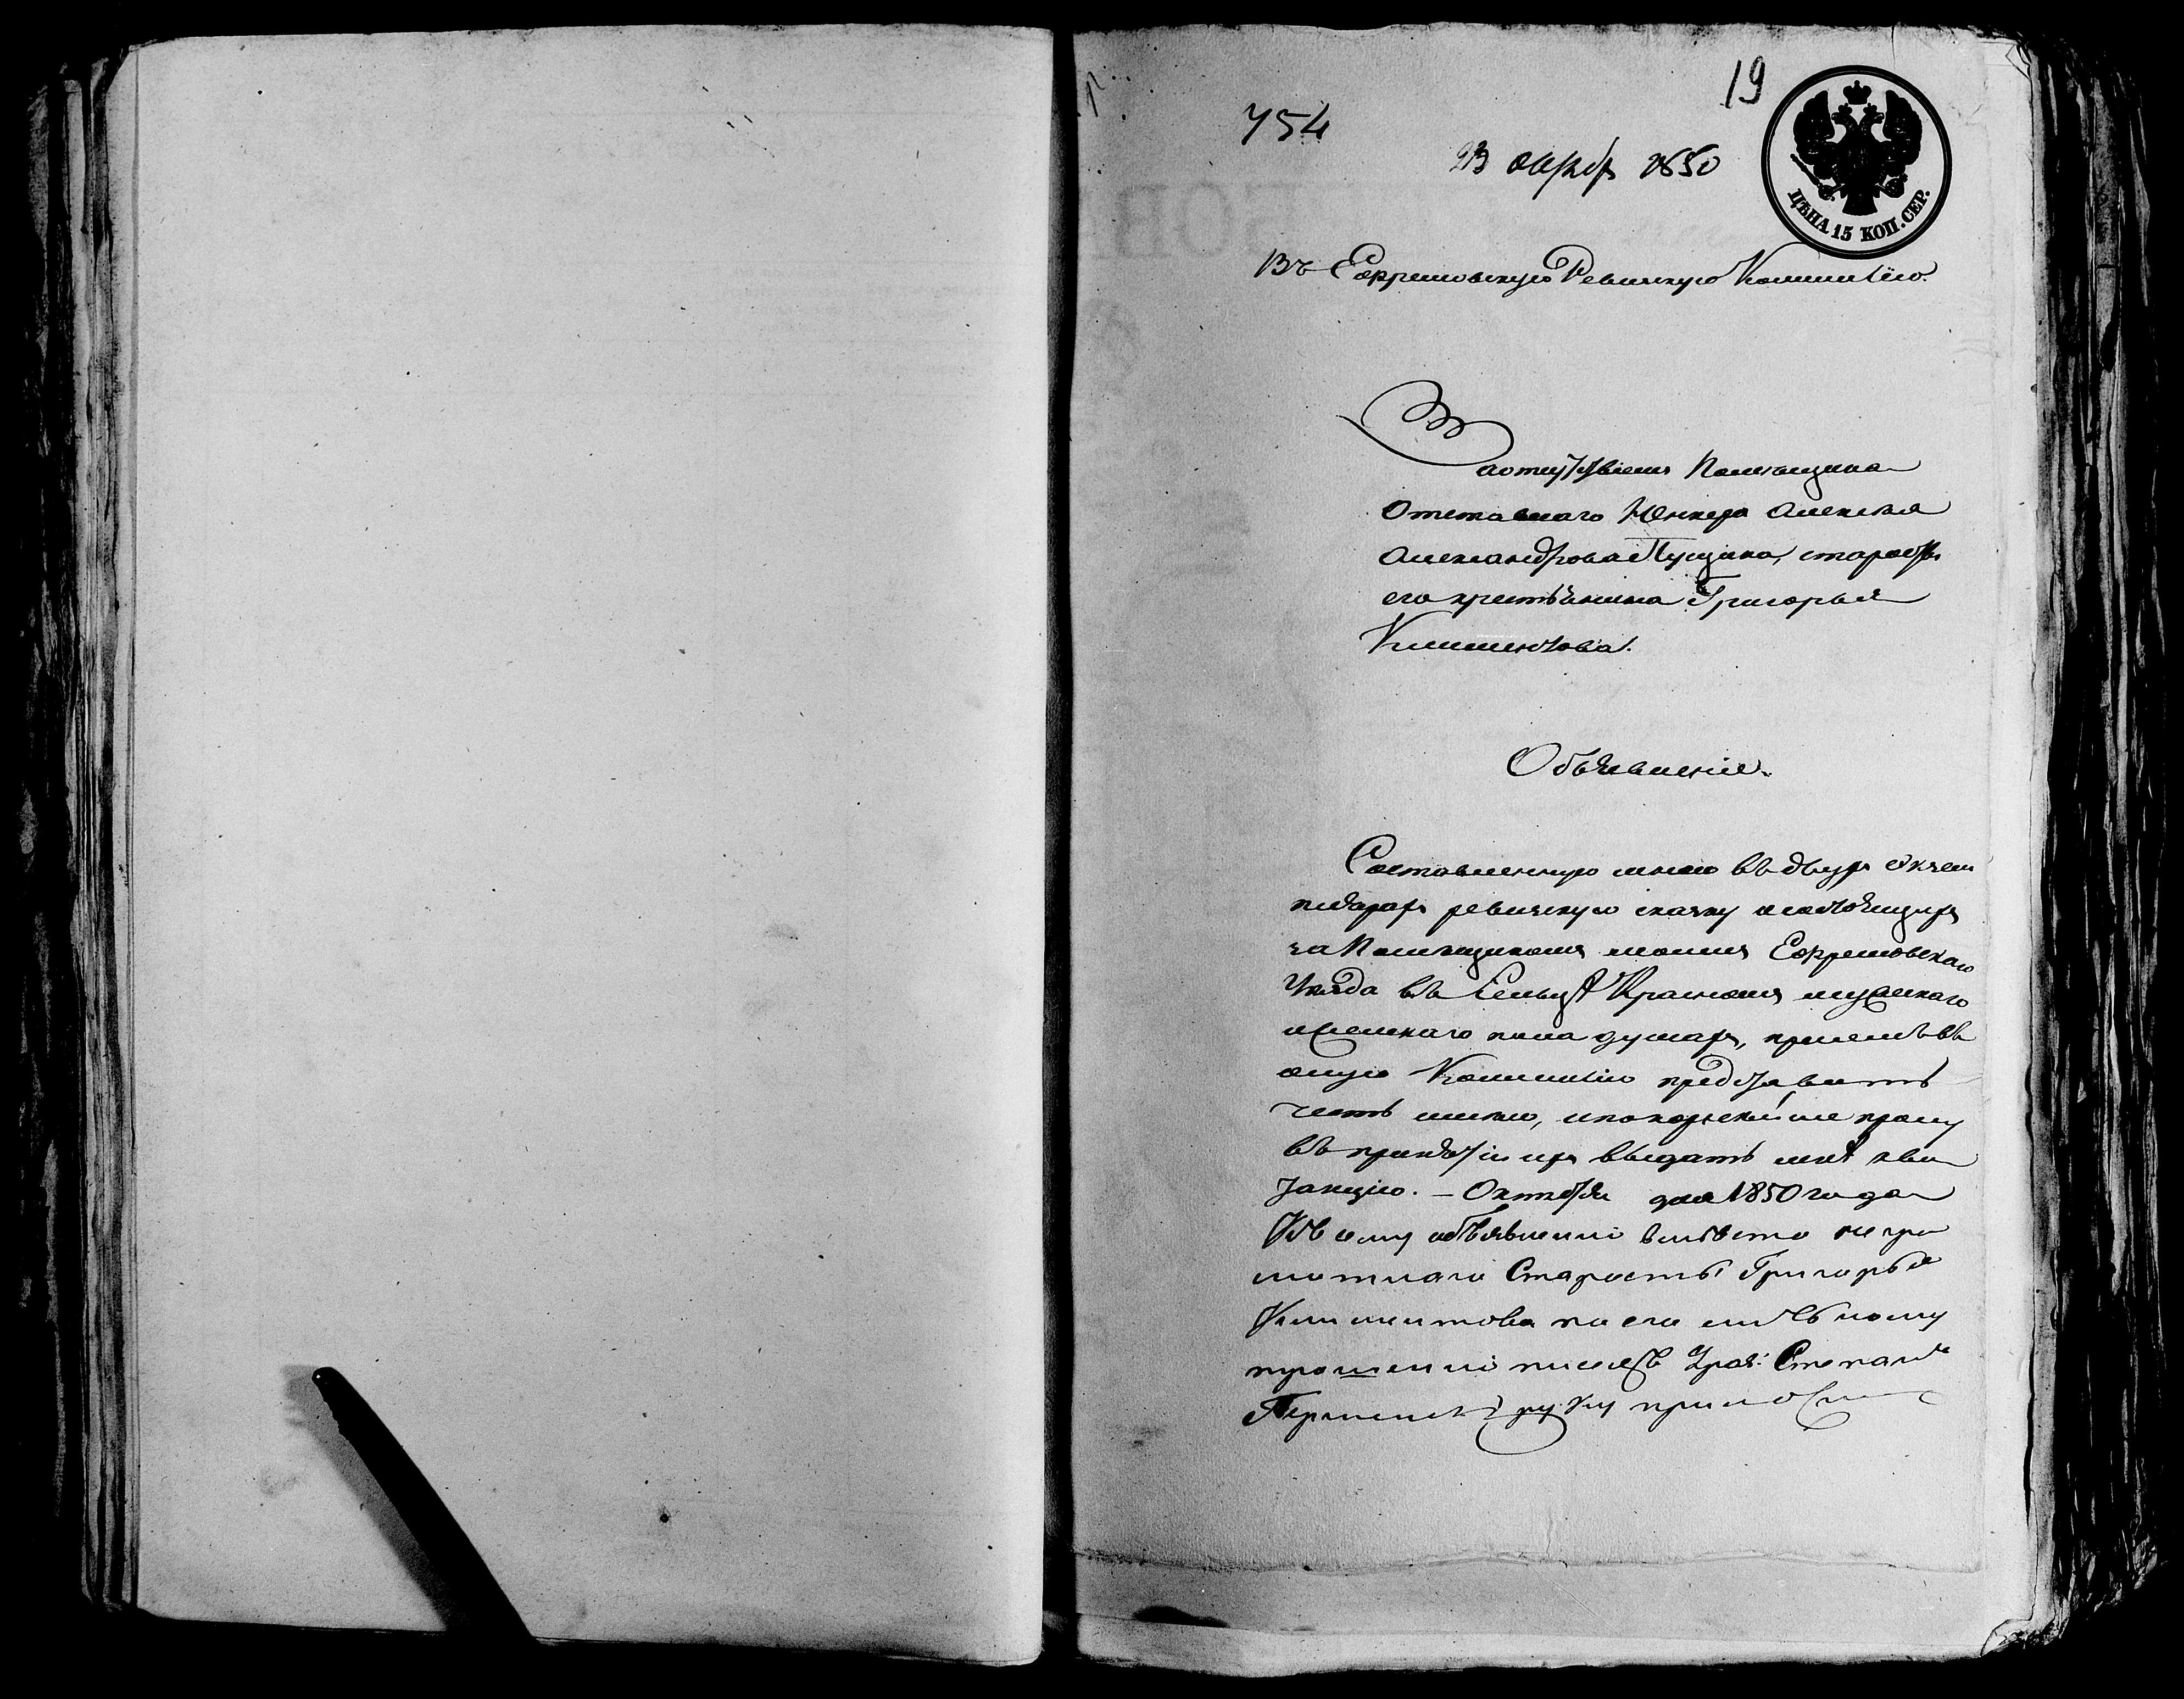 19
754
23 октяб 1850
ЦѢНА 15 КОП. СЕР.
Въ Ефремовскую Ревизкую Коммисію
За отсутствіемъ Помѣщика
Отставнаго Юнкера Алексѣя
Александрова Пущина, старосты
его крестьянина Григорья
Климентова.
Объявленіе.
Составленную мною въ двухъ экзем
плярахъ ревизкую сказку о состоящихъ
за Помѣщикомъ моимъ Ефремовскаго
Уѣзда въ Сельцѣ Красномъ мужскаго
и женскаго пола душахъ, при семъ въ
оную Коммисію представить
честь имѣю, и покорнѣйше прошу
въ принятіи ихъ выдать мнѣ кви
танцію. – Октября дня 1850 года
Къ сему объявленію вмѣсто негра
мотнаго Старосты Григорья
Климентова по его личьному
прошенію писецъ Степанъ
руку приложилъ